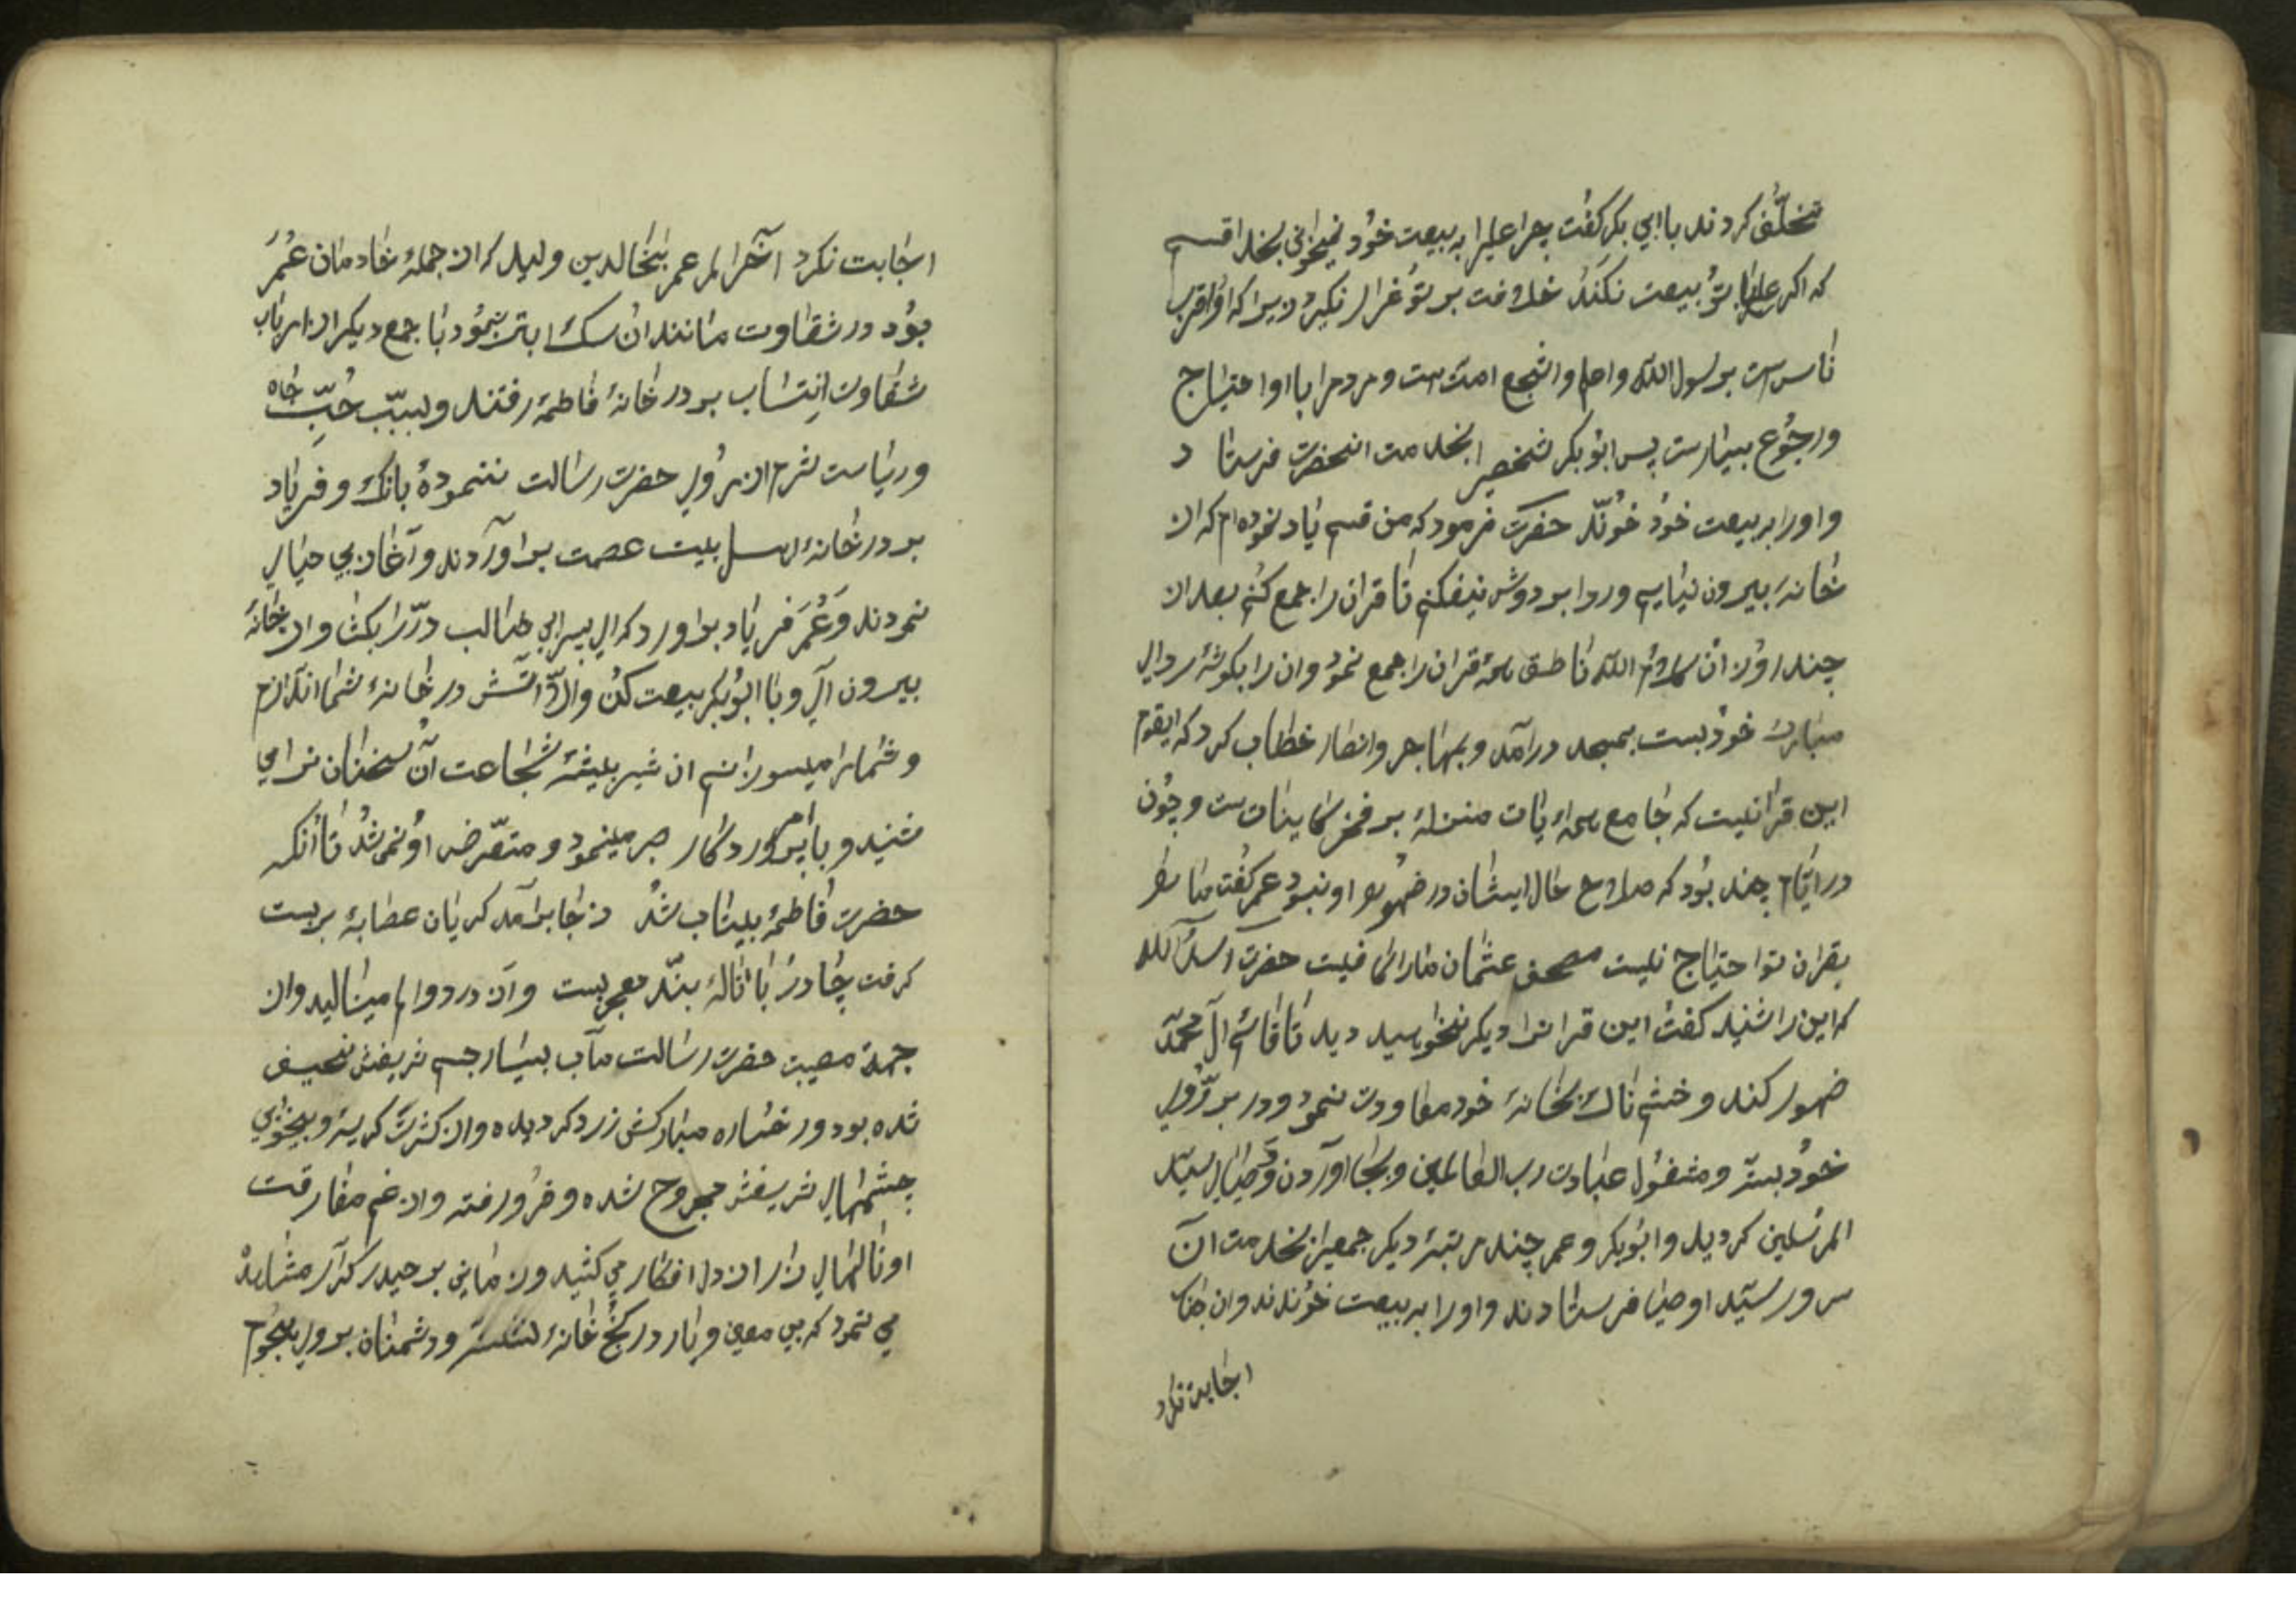 تخلّف کردند با ابی بکر کفت چرا علیرا به بیعت خود نمیخوانی بخدا قسم
که اکر علی با تو بیعت نکند خلافت بر تو قرار نکیرد زیرا که او اقرب
ناس ست برسول الله واعلم واشجع امت ست ومردمرا با او احتیاج
ورجوع بسیارست پس ابو بکر شخصیرا بخدمت انحضرت فرستاد
واورا به بیعت خود خوند حضرت فرمود که من قسم یاد نموده ام که از
خانه بیرون نیایم وردا بر دوش نیفکنم تا قران را جمع کنم بعد از
چند روز ان کلام الله ناطق همه قران را جمع نمود وان را بکوشه ردای
مبارک خود بست بمسجد درآمد وبمهاجر وانصار خطاب کرد که ایقوم
این قرانیست که جامع همه ایات منزله بر فخر کاینات ست وچون
در ایام چند بود که صلاح حال ایشان در ضهور او نبود عمر کفت ما را
بقران تو احتیاج نیست مصحف عثمان مارا کافیست حضرت اسد الله
که این را شنید کفت این قرانرا دیکر نخواهید دید تا قائم آل محمد
ضهور کند وخشم ناک بخانه خود معاودت نمود ودر بر روی
خود بست ومشغول عبادت رب العالمین وبجا اوردن وصیّای سید
المرسلین کردید وابو بکر وعمر چند مرتبه دیکر جمعیرا بخدمت آن
سرور سید اوصیا فرستادند واورا به بیعت خوندند وان جناب
اجابت نکرد
اجابت نکرد آخرا لمر عمر بنخالدبن ولید که از جمله خادمان عمر
بود در شقاوت مانند ان سک ابتر نمود با جمع دیکر از ارباب
شقاوت انتساب بر در خانه فاطمه رفتند وبسبب حُبّ جاه
وریاست شرم از روی حضرت رسالت ننموده بانک وفریاد
بر در خانه اهل بیت عصمت بر آوردند وآغاز بی حیای
نمودند وعمر فریاد بر اورد که ای پسر ابی طالب در را بکشا واز خانه
بیرون آی وبا ابو بکر بیعت کن والا اتش در خانه شما اندازم
وشمارا میسورانم ان شیر بیشه شجاعت آن سخنان را می
شنید وبامر پروردکار صبر مینمود ومتعرض او نمی شد تا آنکه
حضرت فاطمه بیتاب شد از جا برآمد کریان عصابه بربست
کرفت چادر با ناله بند معجر بست واز درد والم مینالید واز
جهة مصیبت حضرت رسالت مآب بسیار جسم شریفش نحیف
شده بود ورخساره مبارکش زرد کردیده واز کثرت کریه وبیخوابی
چشمهای شریفش مجروح شده وفرو رفته واز غم مفارقت
او نالهای زار از دل افکار می کشید وزمانی بر حیدر کرار مشاهدهٔ
می نمود که بی معین ویار در کنج خانه نشسته ودشمنان بر وی هجوم